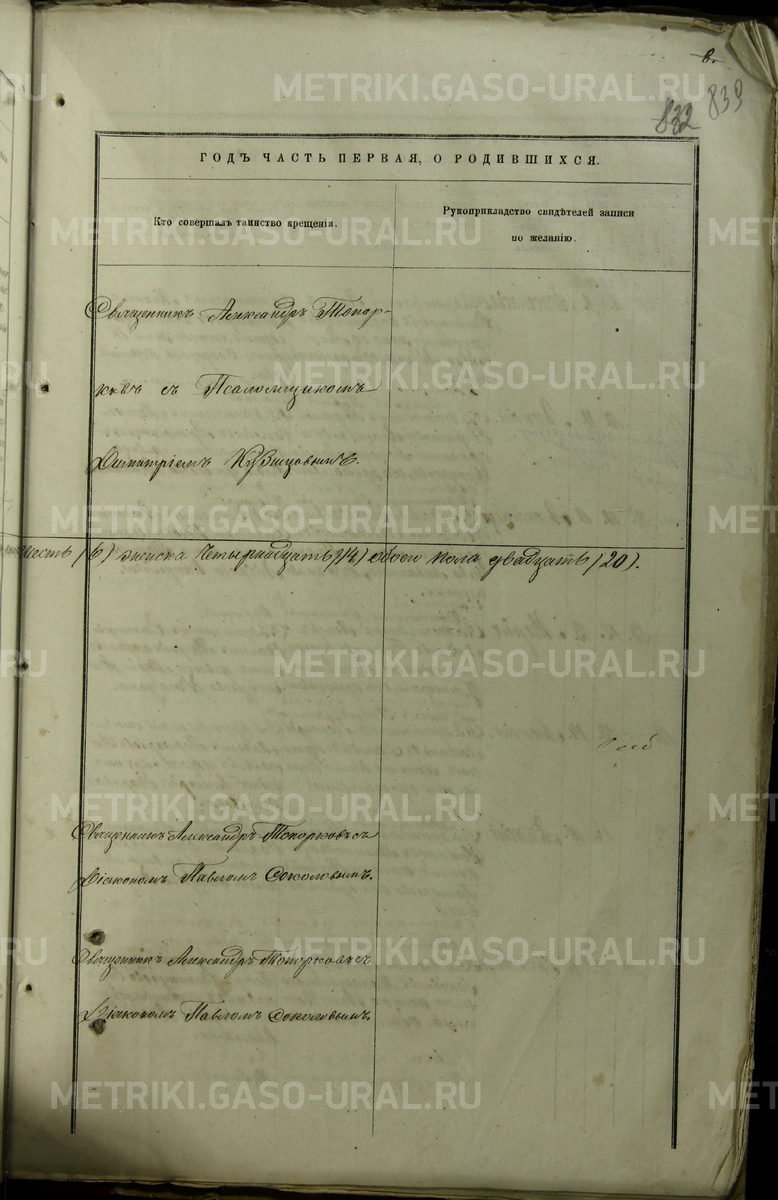 8.
832 839
ГОДЪ ЧАСТЬ ПЕРВАЯ, О РОДИВШИХСЯ.
Кто совершалъ таинство крещенія.
Рукоприкладство свидѣтелей записи
по желанію.
Священникъ Александръ Топор-
ковъ съ Псаломщикомъ
Димитріемъ
шесть (6) женска четырнадцать (14) обоего пола двадцать (20).
Священникъ Александръ Топорковъ съ
Діакономъ Павломъ Соколовымъ.
Священникъ Александръ Топорковъ съ
Діакономъ Павломъ Соколовымъ.
METRIKI.GASO-URAL.RU